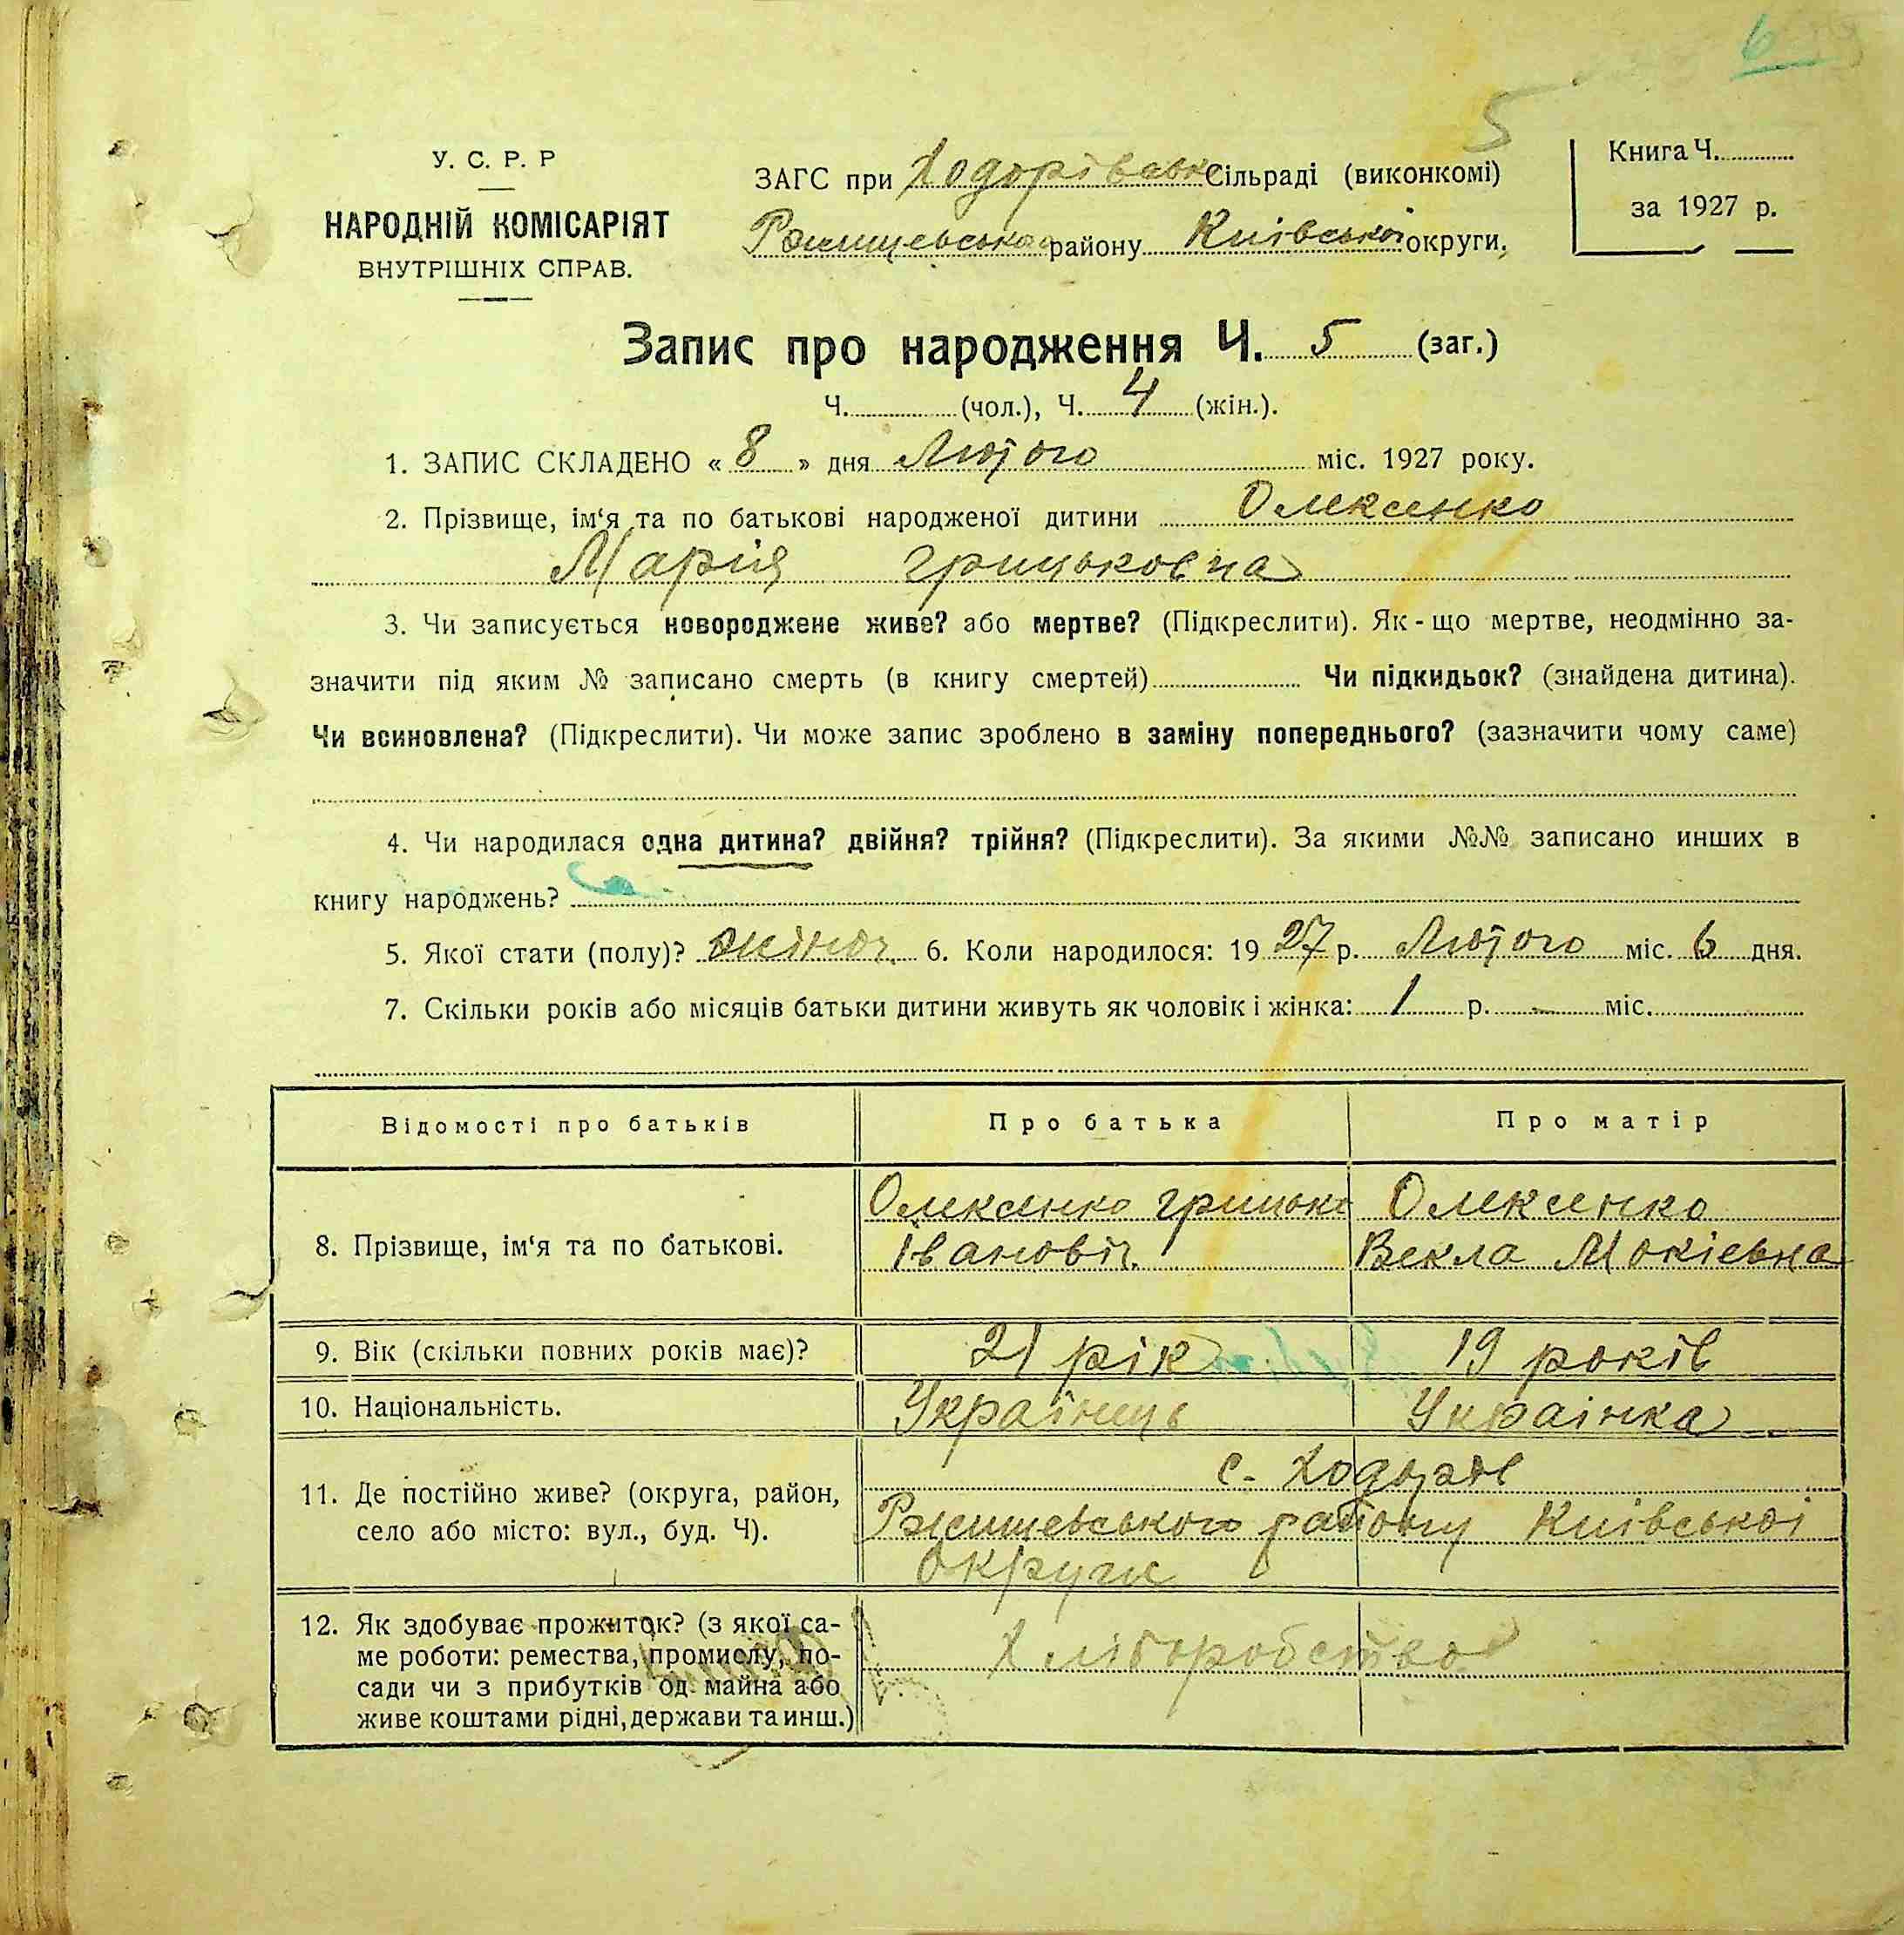 6
5
У. С. Р. Р
НАРОДНІЙ КОМІСАРІЯТ
ВНУТРІШНІХ СПРАВ.
ЗАГС при Ходорівські Сільраді (виконкомі)
Ржищевського району Київської округи,
Книга Ч.
за 1927 р.
Запис про народження Ч. 5 (заг.)
Ч. (чол.), Ч. 4 (жін.).
1. ЗАПИС СКЛАДЕНО « 8 » дня Лютого міс. 1927 року.
2. Прізвище, ім‘я та по батькові народженої дитини Олексенко
Марія Грицьковна
3. Чи записується новороджене живе? або мертве? (Підкреслити). Як - що мертве, неодмінно за-
значити під яким № записано смерть (в книгу смертей) Чи підкидьок? (знайдена дитина).
Чи всиновлена? (Підкреслити). Чи може запис зроблено в заміну попереднього? (зазначити чому саме)
4. Чи народилася одна дитина? двійня? трійня? (Підкреслити). За якими №№ записано инших в
книгу народжень?
5. Якої стати (полу)? жіноч. 6. Коли народилося: 19 27 р. Лютого міс. 6 дня.
7. Скільки років або місяців батьки дитини живуть як чоловік і жінка: 1 р. – міс.
Відомості про батьків Про батька Про матір
8. Прізвище, ім‘я та по батькові.
Олексенко Грицько
Івановіч.
Олексенко
Векла Мокієвна
9. Вік (скільки повних років має)? 21 рік 19 років
10. Національність. Українець Українка
11. Де постійно живе? (округа, район,
село або місто: вул., буд. Ч).
с. Ходорів
Ржищевського району Київської
округи
12. Як здобуває прожиток? (з якої са-
ме роботи: ремества, промислу, по-
сади чи з прибутків од майна або
живе коштами рідні, держави та инш.)
Хліборобство